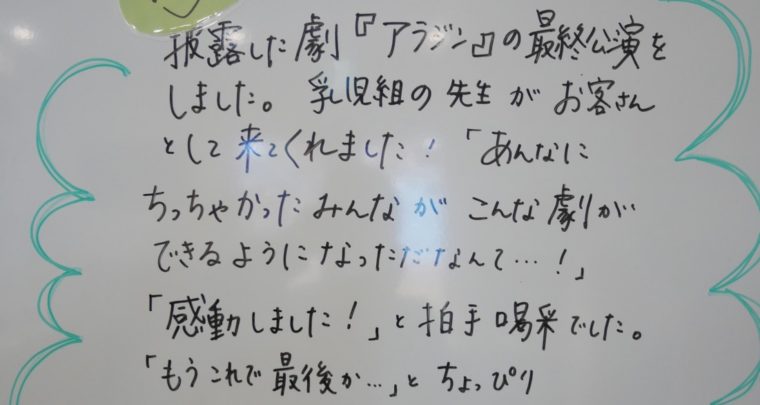 披露した劇『アラジン』の最終公演を
しました。乳児組の先生がお客さん
として来てくれました!「あんなに
ちっちゃかったみんながこんな劇が
できるようになっただなんて…!」
「感動しました!」と拍手喝采でした。
「もうこれで最後か…」とちょっぴり